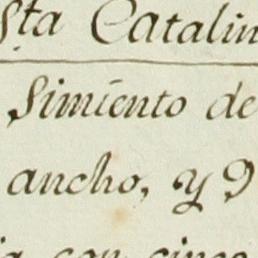 Sta Catalin
Simiento de
ancho, y 9
ia con cinco